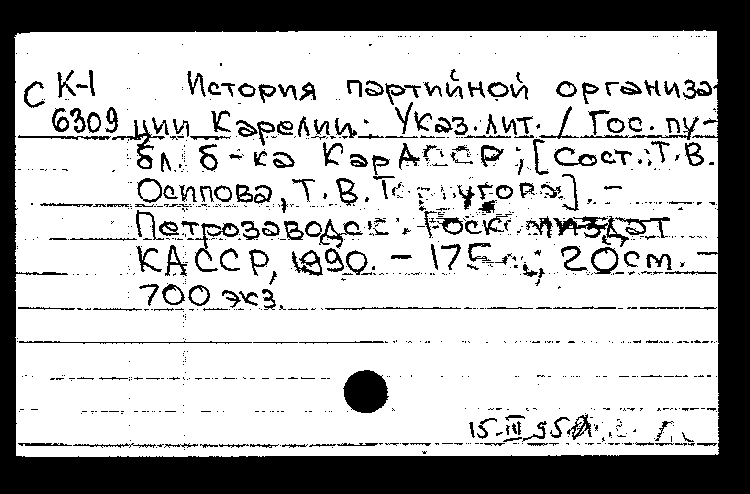 С К-1 История партийной организа-
6309 ции Карелии: Указ. лит. / Гос. пу-
бл. б-ка КарАССР; [Сост.: Т.В.
Осипова, Т.В. ]. –
Петрозаводск:
КАССР, 1990. – 175 с.; 20 см. –
700 экз.
15.III.95